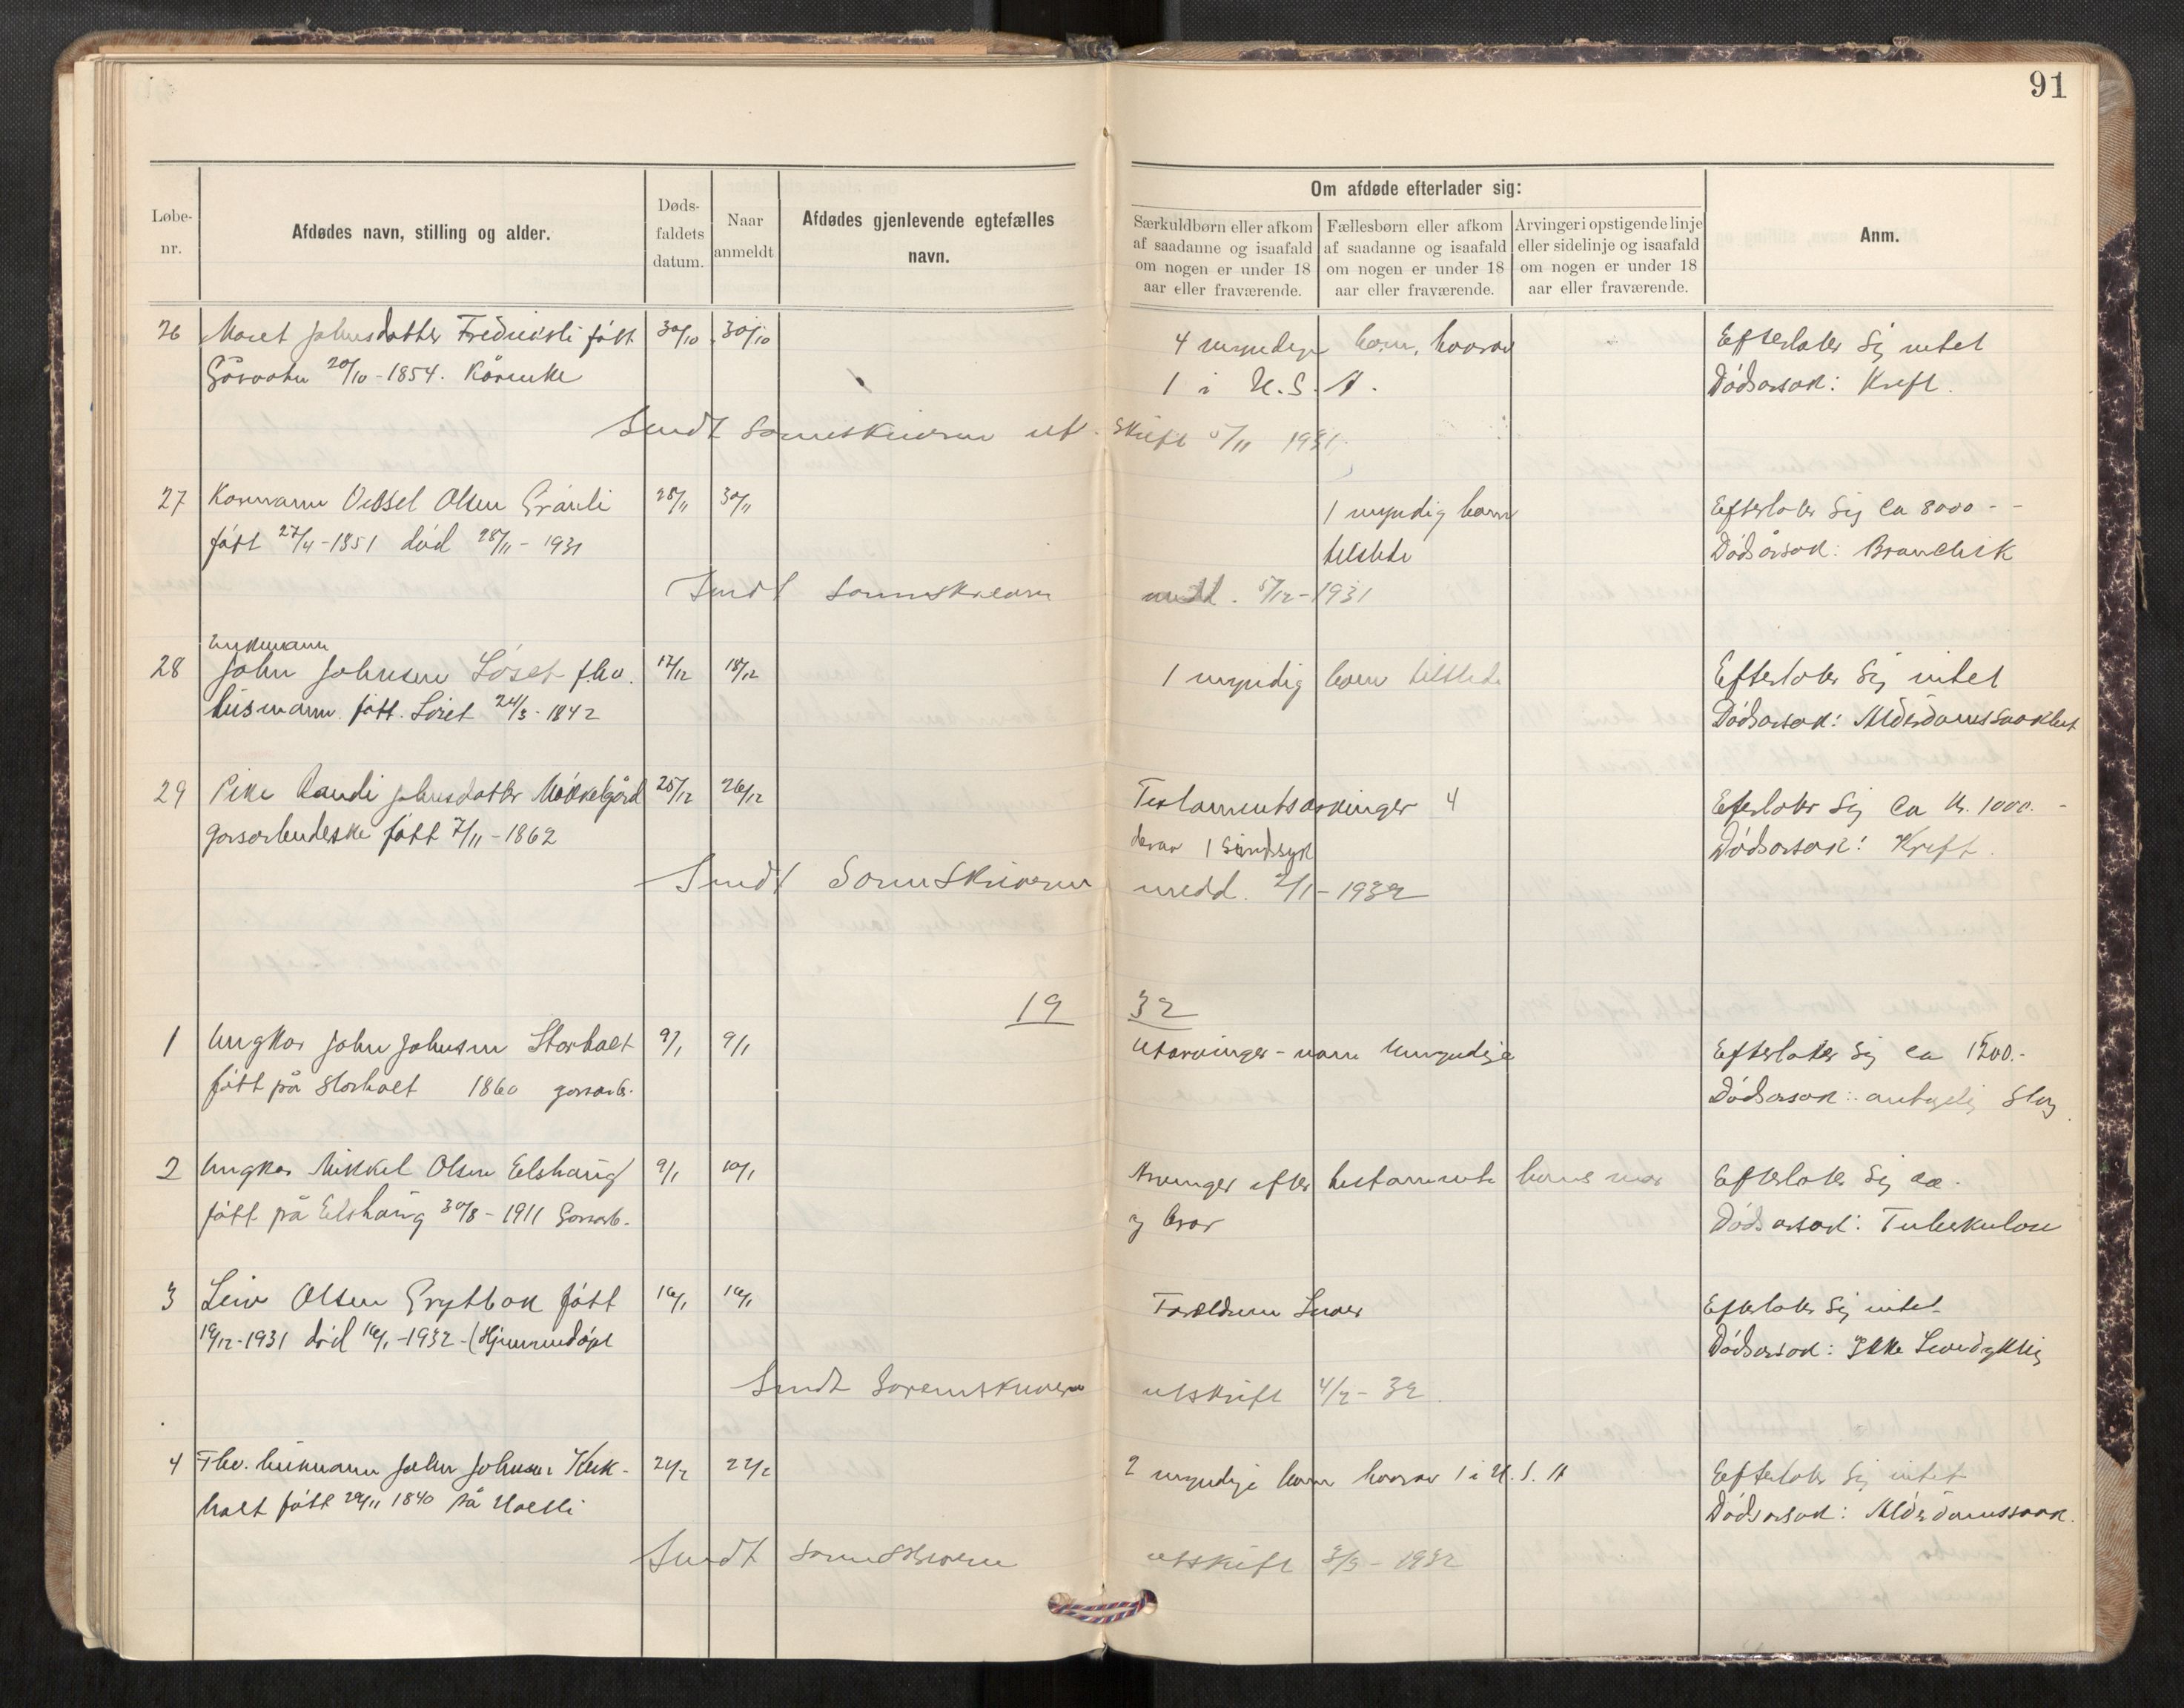 91
Løbe-
nr.
Afdødes navn, stilling og alder.
Døds-
faldets
datum.
Naar
anmeldt
Afdødes gjenlevende egtefælles
navn.
Om afdøde efterlader sig:
Særkuldbørn eller afkom
af saadanne og isaafald
om nogen er under 18
aar eller fraværende.
Fællesbørn eller afkom
af saadanne og isaafald
om nogen er under 18
aar eller fraværende.
Arvinger i opstigende linje
eller sidelinje og isaafald
om nogen er under 18
aar eller fraværende.
Anm.
26 Maret Johnsdatter født 30/10 30/10 4 myndige barn, hvorav Efterlater sig intet
20/10 - 1854. Kårenke 1 i U.S.A. Dödsorsak: Kreft.
Sendt Sorenskriveren ut- skrift 5/11 1931.
27 Kaarmann Olsen Grånli 28/11 30/11 1 myndig barn Efterlater sig ca 8000 - -
født 27/4 - 1851 död 28/11 - 1931 tilstede Dödsårsak:
Sendt Sorenskriveren medd. 5/12 - 1931
Enkemann
28 John Johnsen Löset fhv. 17/12 18/12 1 myndig barn tilstede Efterlater sig intet
husmann. født. Löset 24/3 - 1842 Dödsorsak: Alderdomssvakhet
29 Pike Randi Johnsdatter Mökkelgård 25/12 26/12 Testamentsarvinger 4 Efterlater sig ca kr. 1000. -
gårsarbeideske født 7/11 - 1862 derav 1 sindssyk Dödsorsak: Kreft.
Sendt Sorenskriveren medd. 2/1 - 1932
19 32
1 Ungkar John Johnsen Storholt 9/1 9/1 Utarvinger - umyndige Efterlater sig ca 1500.-
født på Storholt 1860 gårsarb. Dödsorsak: antagelig slag
2 Ungkar Mikkel Olsen Elshaug 9/1 10/1 Arvinger efter testamente hans mor Efterlater sig
født på Elshaug 30/8 - 1911 Gårsarb. og bror Dödsorsak: Tuberkulose
3 Leiv Olsen Gryttbak født 16/1 16/1 Foreldrene lever Efterlater sig intet
19/12 - 1931 död 16/1 - 1932 - (Hjemmedöpt Dödsorsak: Ikke Levedyktig
Sendt Sorenskriveren utskrift 4/2 - 32.
4 Fhv. husmann John Johnsen Kirk- 21/2 22/2 2 myndige barn hvorav 1 i U.S.A Efterlater sig intet
holt født 29/11 1840 på Dödsorsak: Alderdomssvak.
Sendt Sorenskriveren utskrift 3/3 - 1932